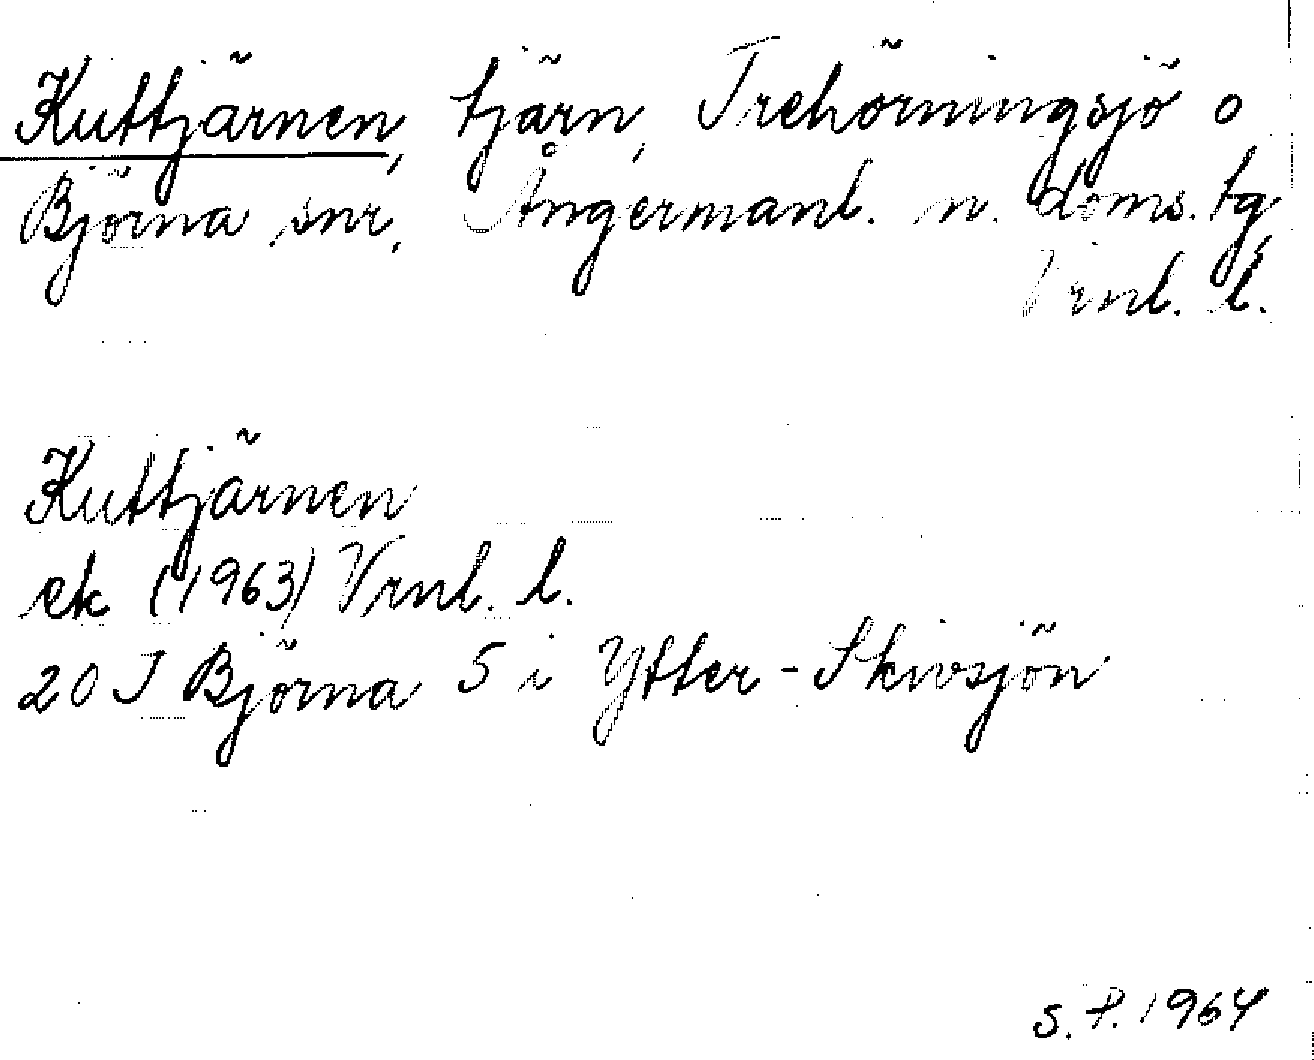 Kuttjärnen, tjärn, Trehörningsjö o
Björna snr, Ångermanl. n. doms. tg,
Vrnl. l.
Kuttjärnen
ek (1963) Vrnl. l.
20 J Björna 5 i Ytter-Skivsjön
S. P. 1964